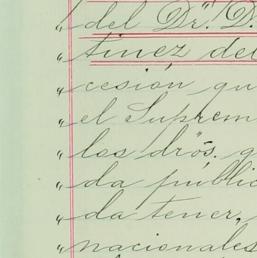 " del Dr. D.
" tinez del
" cesión qu
" el Suprem
" los drós. q
" da públic
" da tener,
" nacionales